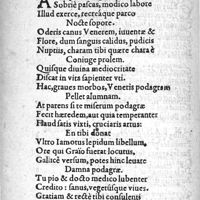 A Sobriè pascas, modico labore
Illud exerce, recreáque parco
Nocte sopore.
Oderis canus Venerem, iuuentæ &
Flore, dum sanguis calidus, pudicis
Nuptiis, charam tibi quære chara è
Coniuge prolem.
Quisque diuina mediocritate
Discat in vita sapienter vti.
Hac, graues morbos, Venetis podagram
Pellet alumnam.
At parens si te miserum podagræ
Fecit hæredem, aut quia temperanter
Haud satis vixti, cruciaris artus:
En tibi donat
Vltro Iamotus lepidum libellum,
Ore qui Graio fuerat locutus,
Gallicè versum, potes hinc leuate
Damna podagræ.
Tu pio & docto medico lubenter
Credito: sanus, vegetúsque viues.
Gratiam & rectè tibi consulenti